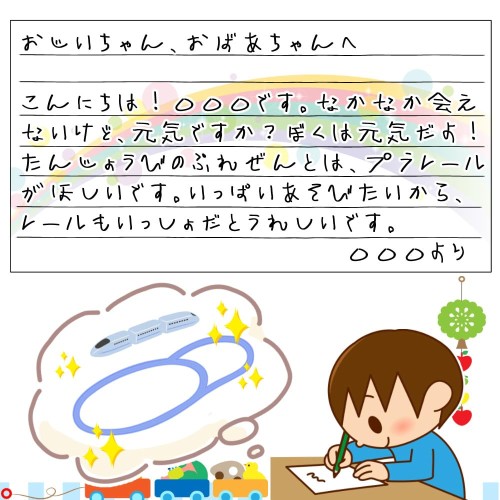 おじいちゃん、おばあちゃんへ
こんにちは！○○○です。なかなか会え
ないけど、元気ですか？ぼくは元気だよ！
たんじょうびのぷれぜんとは、プラレール
がほしいです。いっぱいあそびたいから、
レールもいっしょだとうれしいです。
○○○より